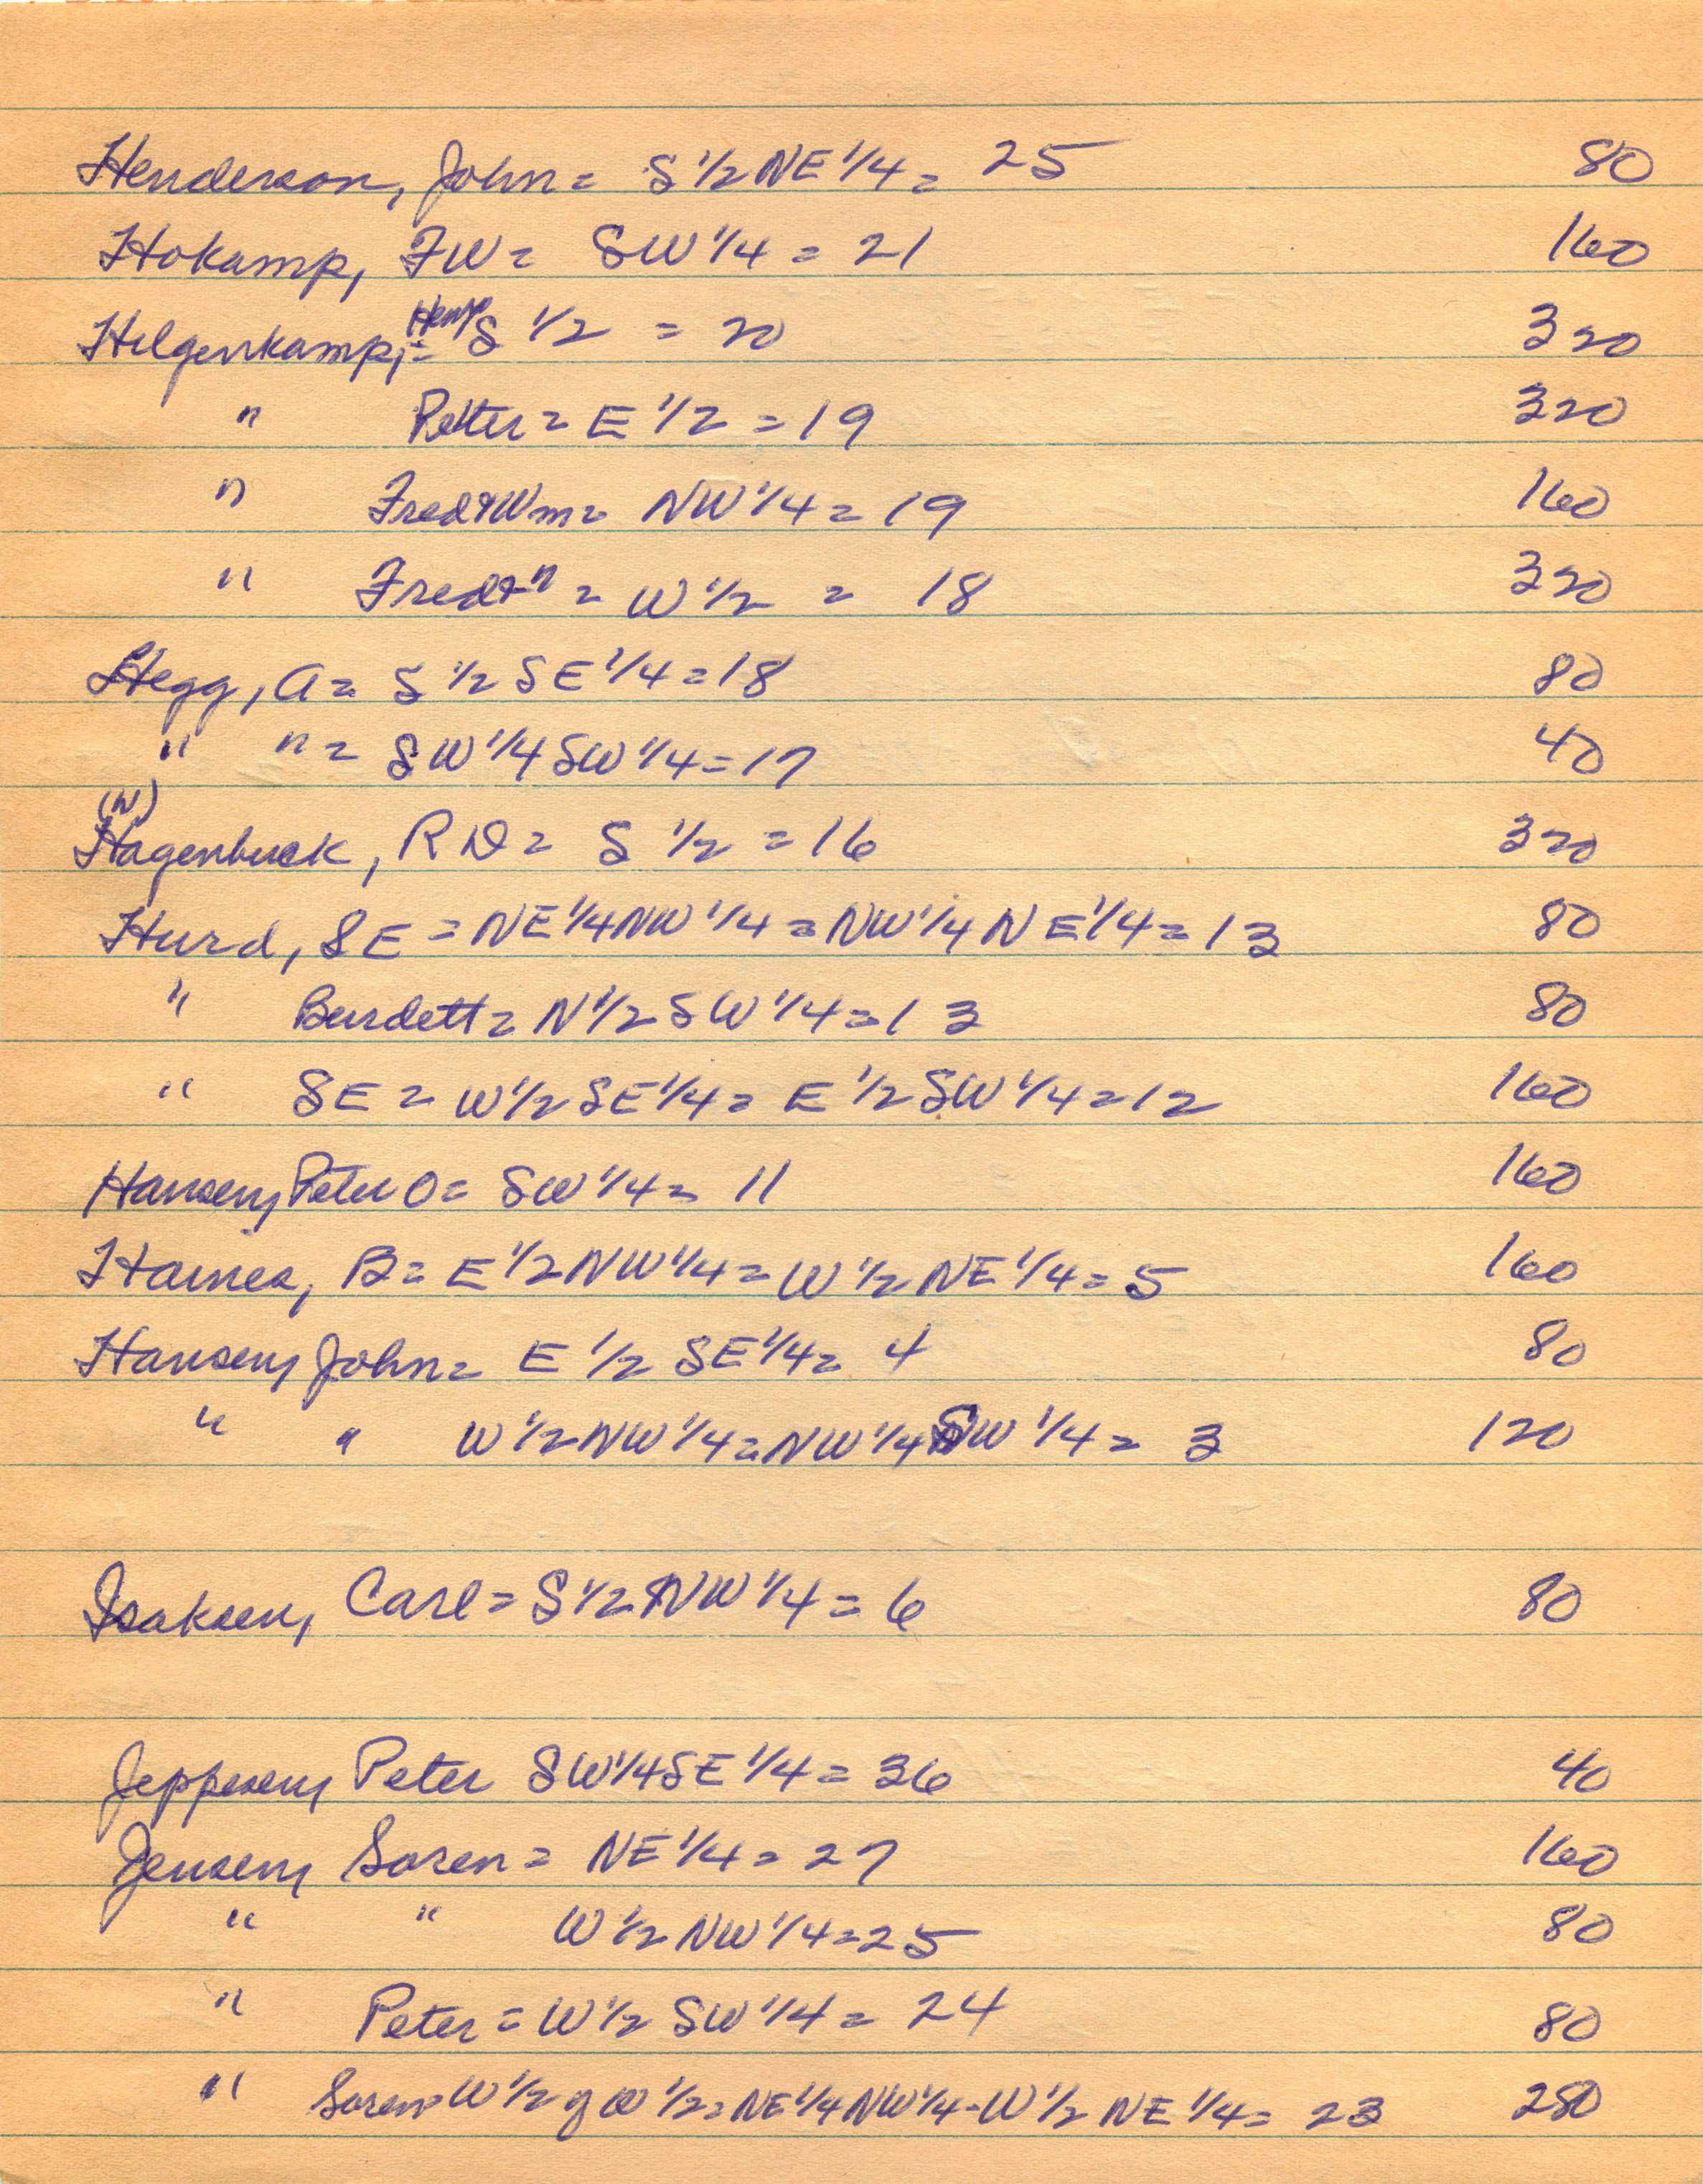 Henderson, John = S 1/2 NE 1/4 = 25 80
Hokamp, FW = SW 1/4 = 21 160
Hilgenkamp, Heny = S 1/2 = 20 320
" Peter = E 1/2 = 19 320
" Fred & Wm = NW 1/4 = 19 160
" Fred & " = W 1/2 = 18 320
Hegg, A = S 1/2 SE 1/4 = 18 80
" " = SW 1/4 SW 1/4 = 17 40
(W)
Hagenbuck, RD = S 1/2 = 16 320
Hurd, SE = NE 1/4 NW 1/4 = NW 1/4 NE 1/4 = 13 80
" Burdett = N 1/2 SW 1/4 = 13 80
" SE = W 1/2 SE 1/4 = E 1/2 SW 1/4 = 12 160
Hansen, Peter O = SW 1/4 = 11 160
Haines, B = E 1/2 NW 1/4 = W 1/2 NE 1/4 = 5 160
Hansen, John = E 1/2 SE 1/4 = 4 80
" " W 1/2 NW 1/4 = NW 1/4 SW 1/4 = 3 120
Isaksen, Carl = S 1/2 NW 1/4 = 6 80
Jeppesen, Peter SW 1/4 SE 1/4 = 36 40
Jensen, Soren = NE 1/4 = 27 160
" " W 1/2 NW 1/4 = 25 80
" Peter = W 1/2 SW 1/4 = 24 80
" Soren = W 1/2 W 1/2 = NE 1/4 NW 1/4 - W 1/2 NE 1/4 = 23 280